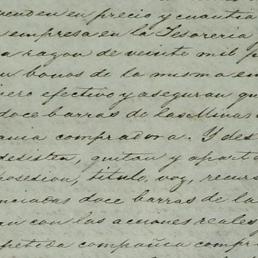 venden en precio y cuantia
empresa en la Tesoreria
a razon de veinte mil p
u bonos de la misma em
nero efectivo y aseguran qu
doce barras de las Minas
ania compradora. Y des
desisten, quitan y apart
posesion, titulo, voz, recurs
nciadas doce barras de la
an con las acciones reales
petida compañia compr